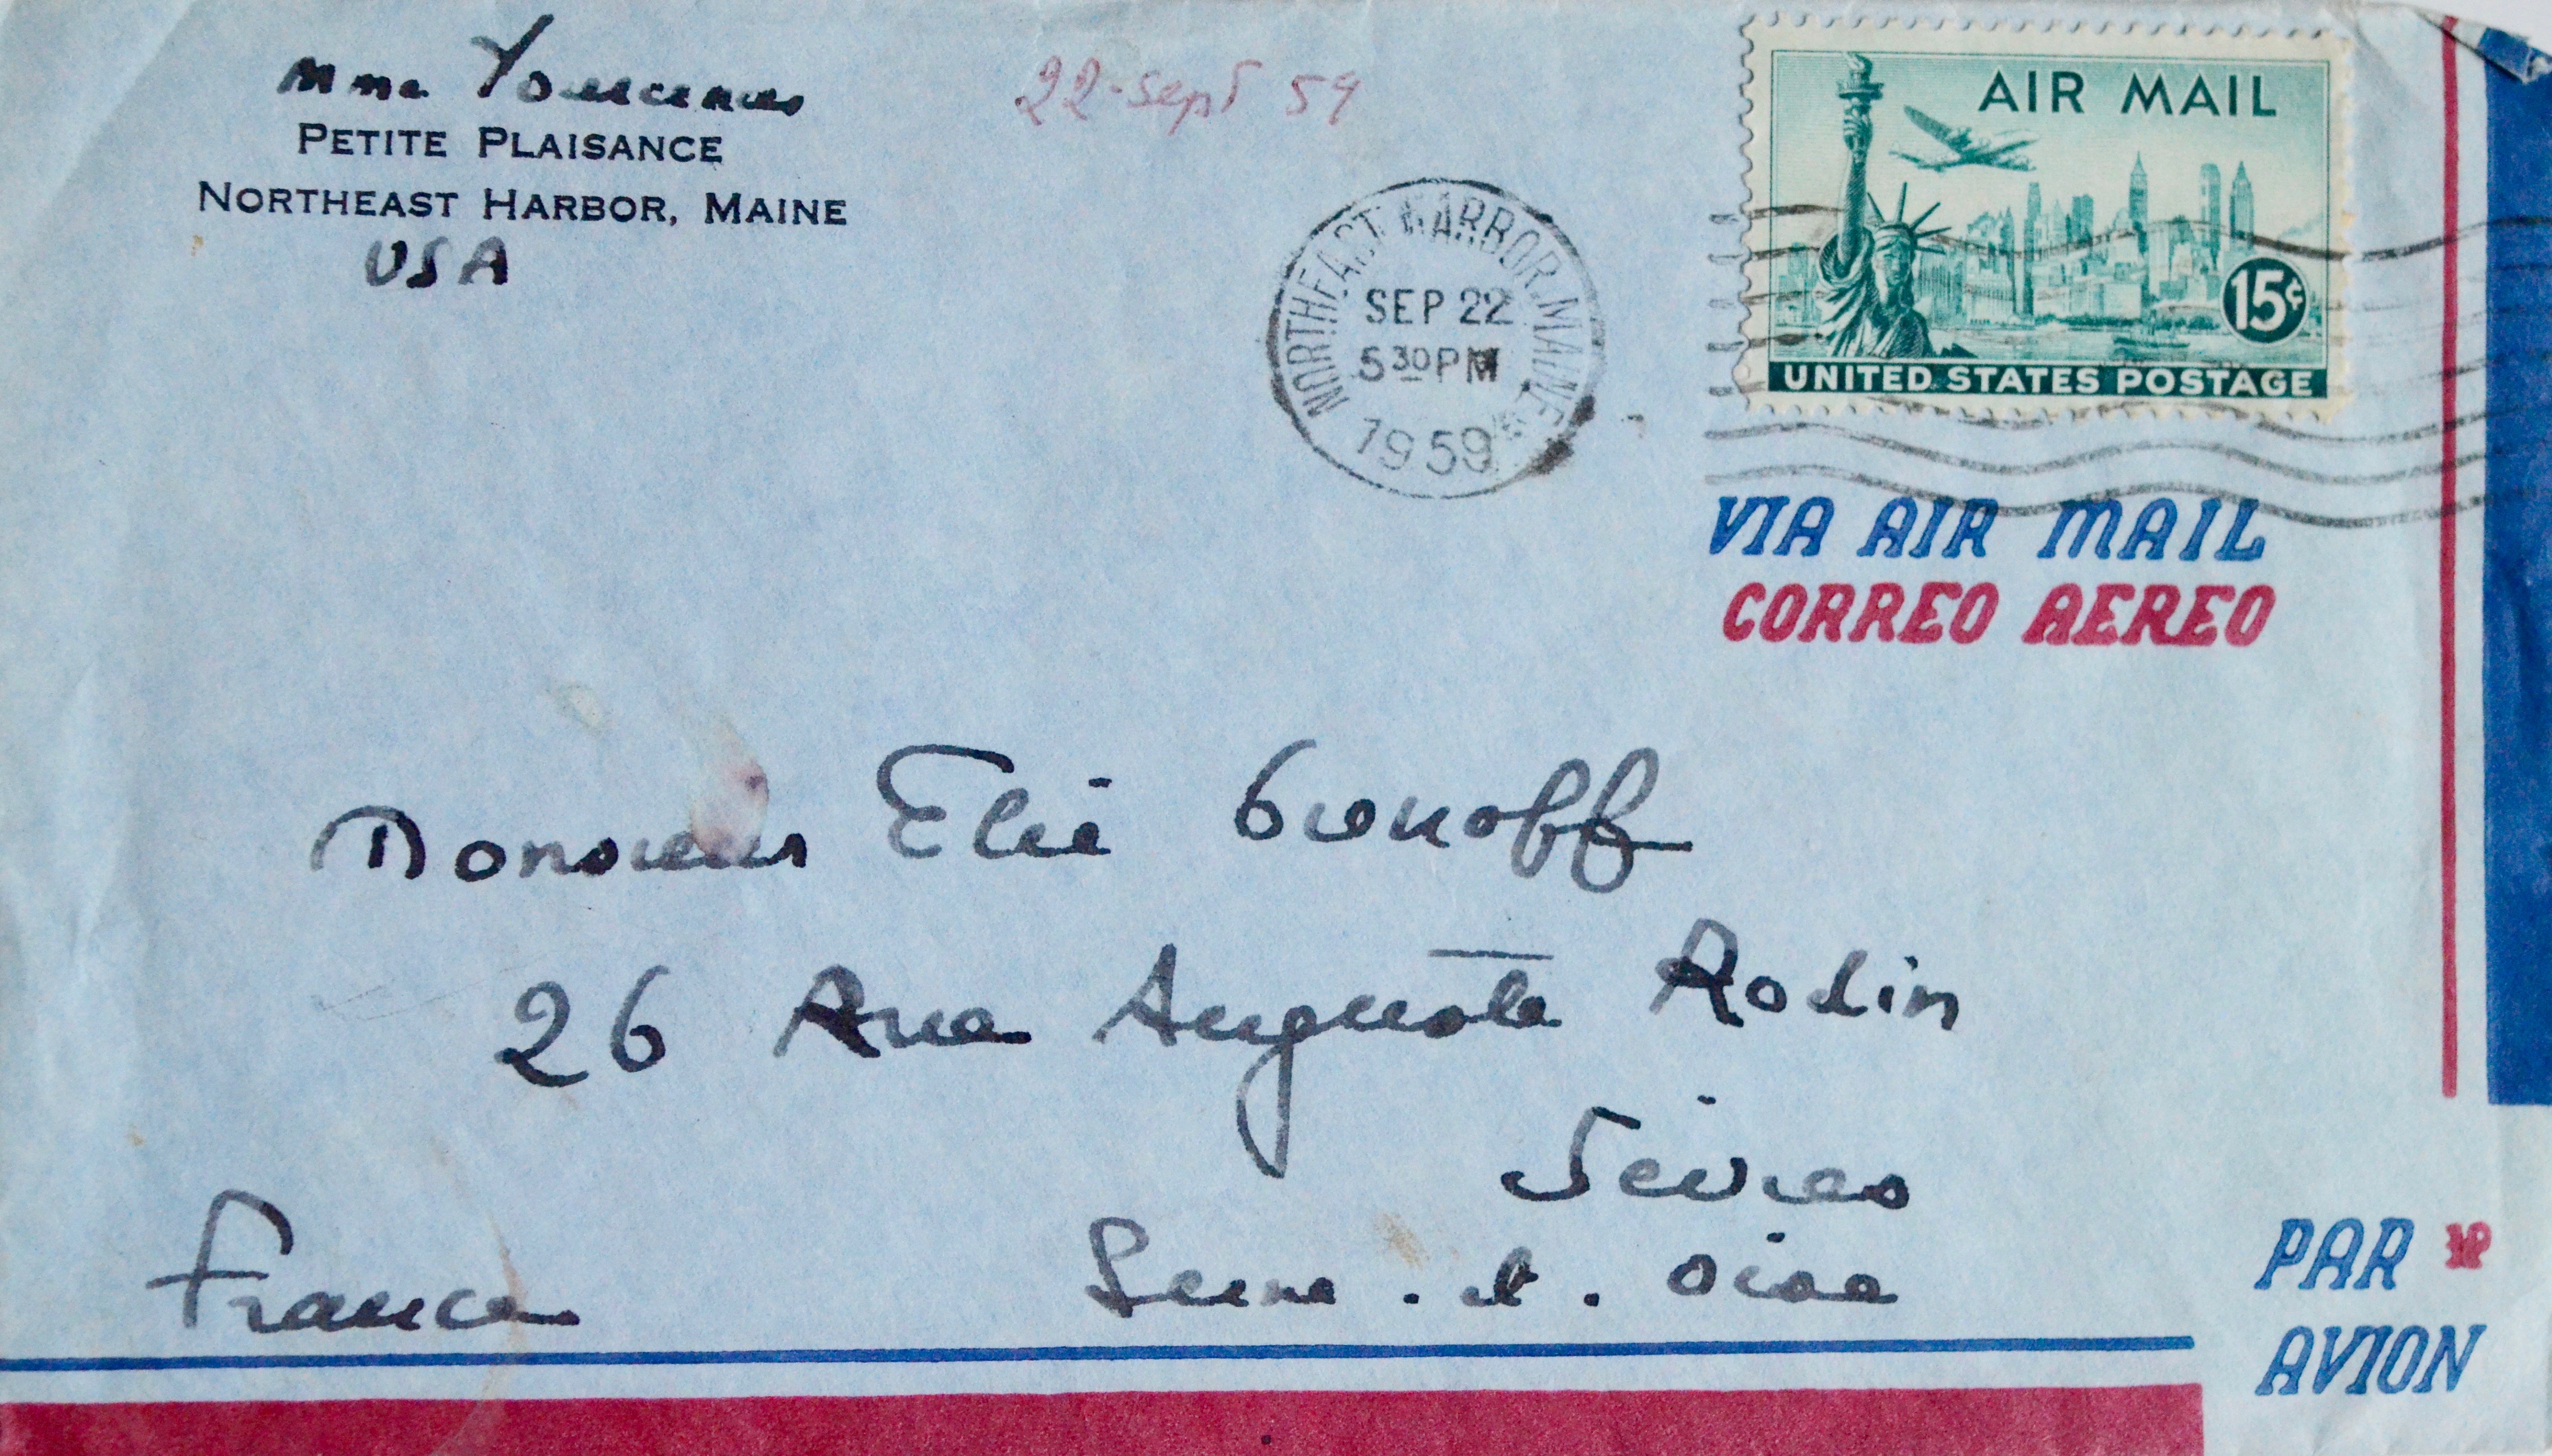 Mme Yourcenar
PETITE PLAISANCE
NORTHEAST HARBOR, MAINE
USA
22-sept 59
NORTHEAST HARBOR, MAINE
SEP 22
5 30 PM
1959
AIR MAIL
15¢
UNITED STATES POSTAGE
VIA AIR MAIL
CORREO AEREO
Monsieur Elie Grekoff
26 Rue Auguste Rodin
Sèvres
Seine.et.Oise
France
PAR
AVION